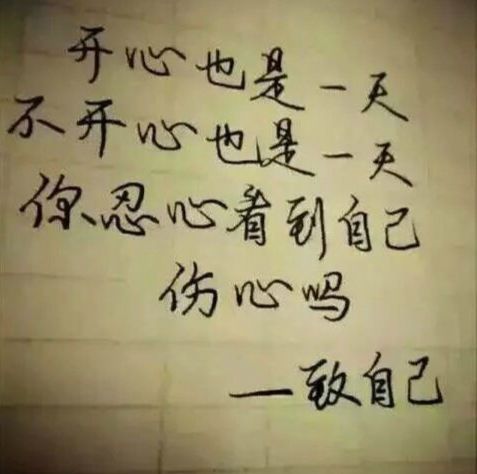 开心也是一天
不开心也是一天
你忍心看到自己
伤心吗
—致自己